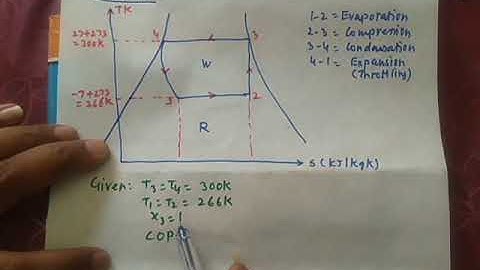 TK
27+273
=300K
4
3
W
-7+273
=266K
3
2
R
S (KJ/KgK)
1-2 = Evaporation
2-3 = Compression
3-4 = Condensation
4-1 = Expansion
(Throttling)
Given: T3 = T4 = 300K
T1 = T2 = 266K
x3 = 1
COP